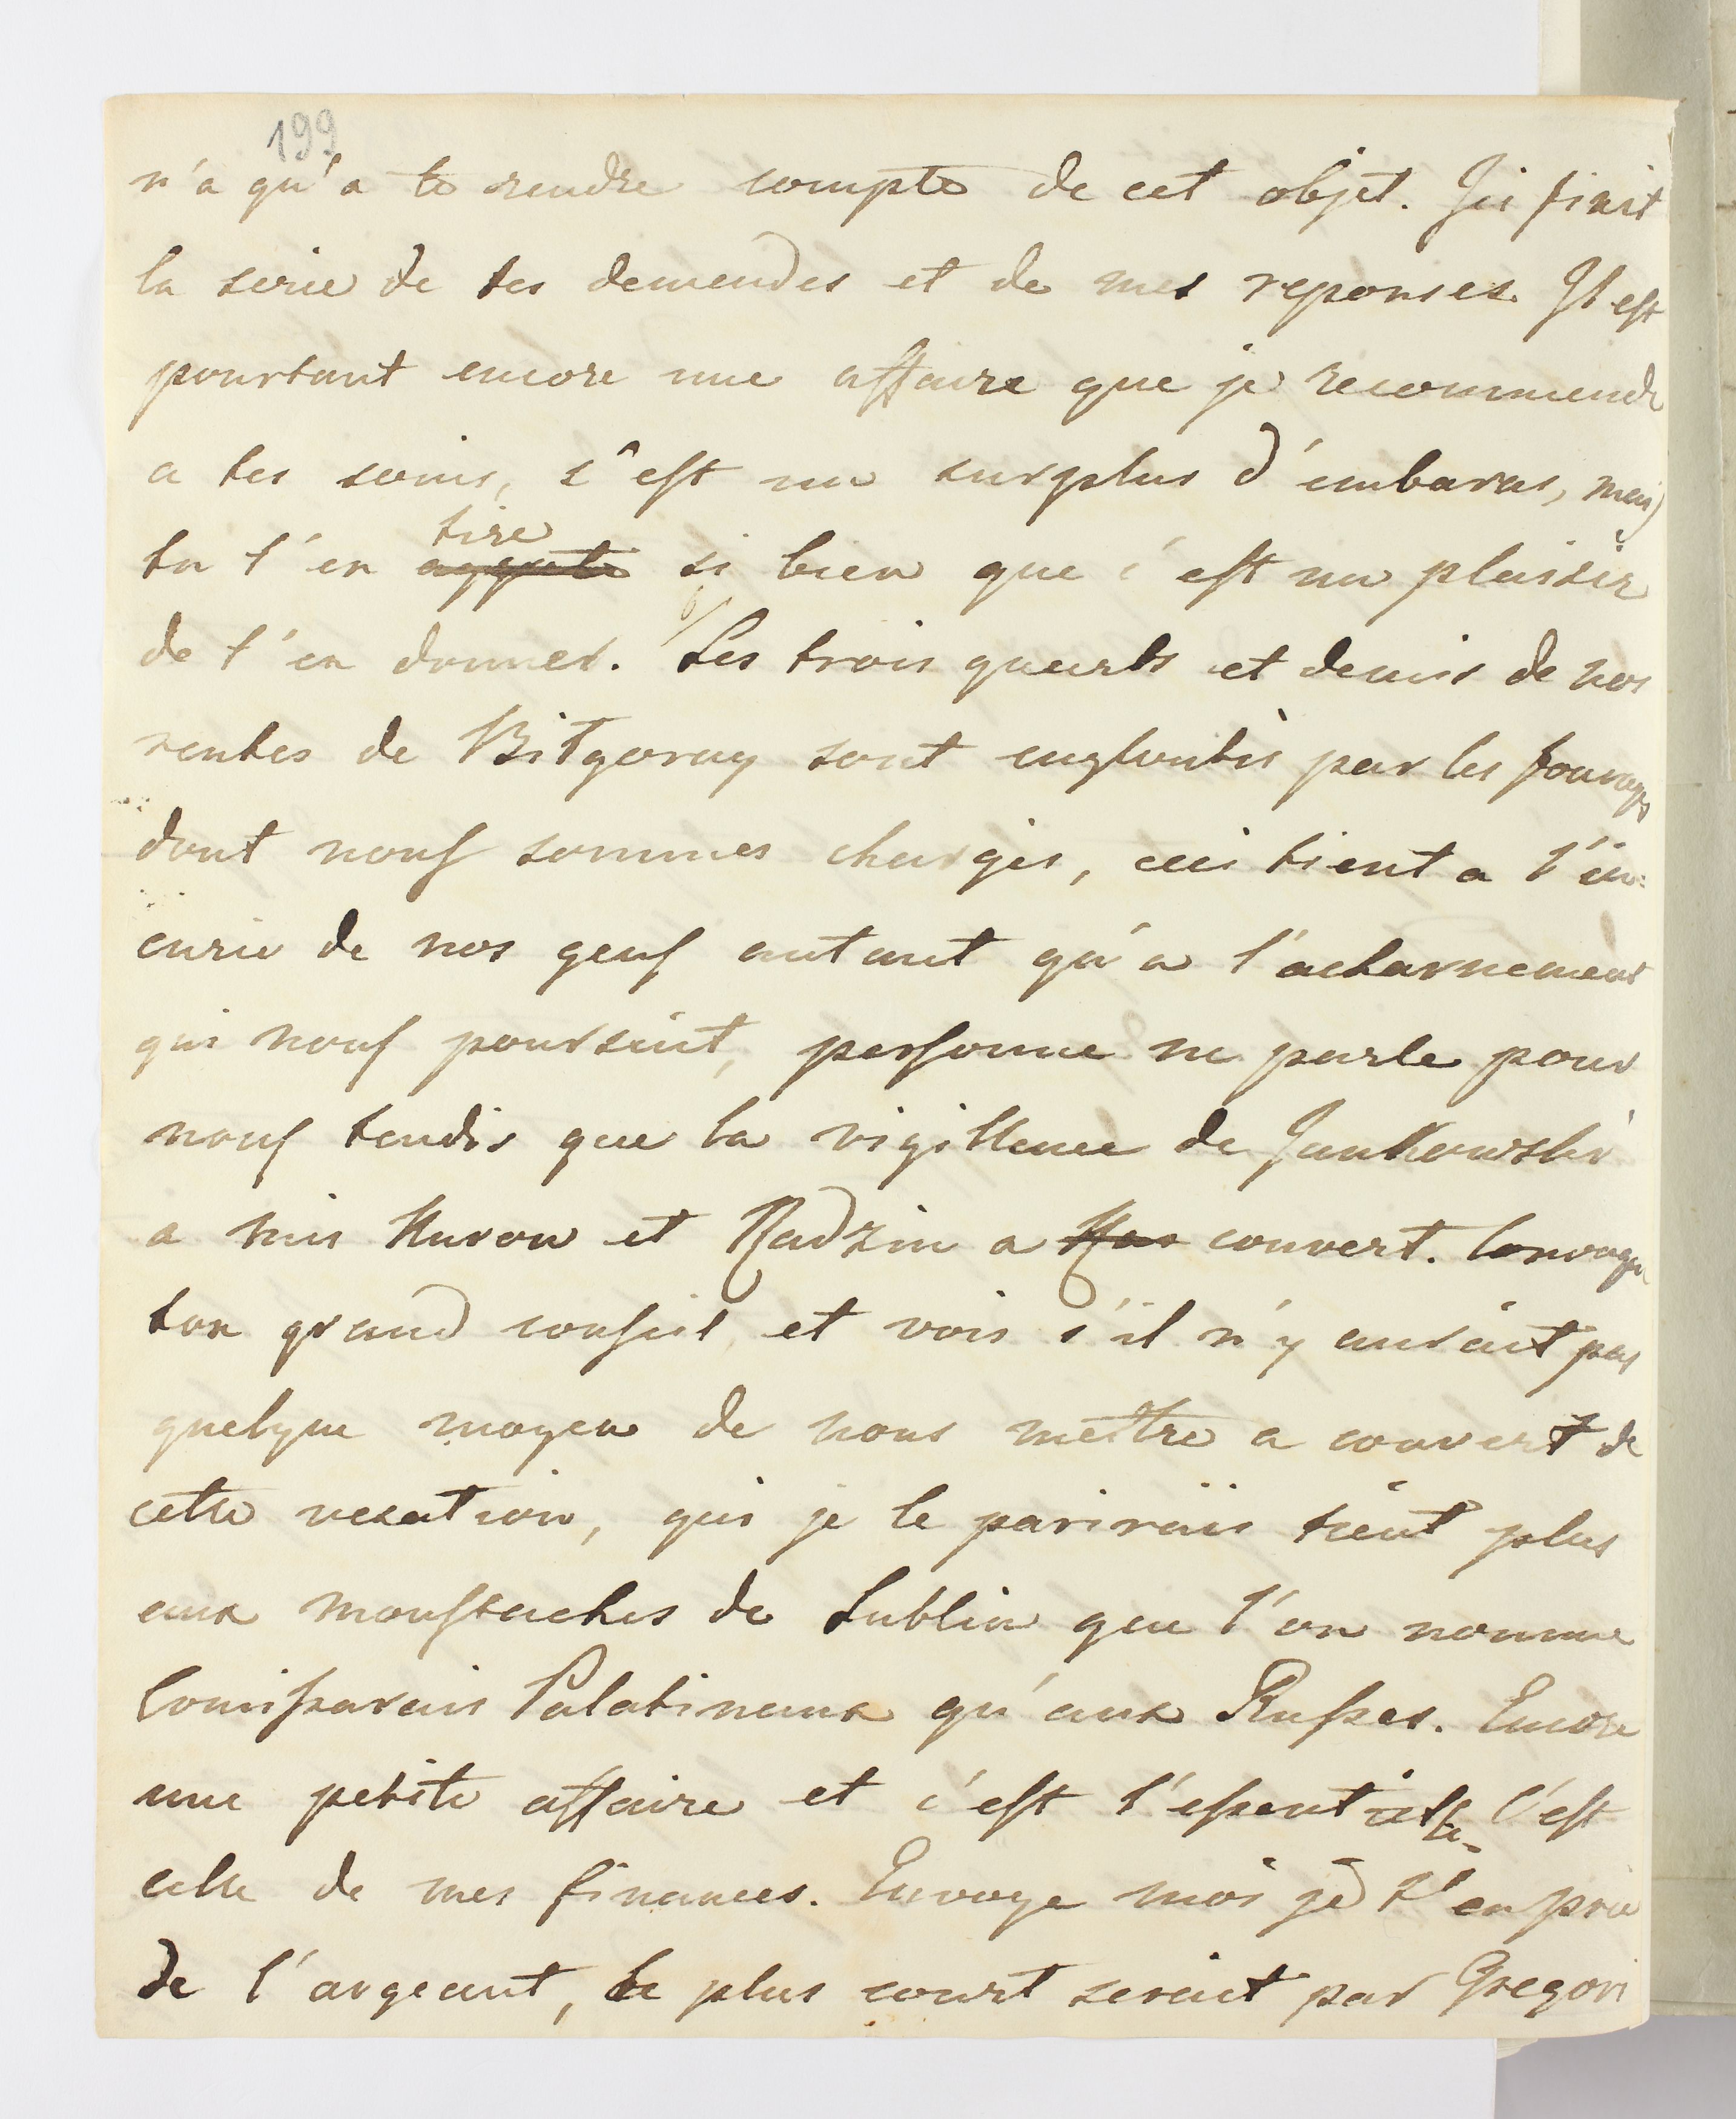 199
n'a qu'a te rendre compte de cet objet. Ici finit
la serie de tes demendes et de mes reponses. Il est
pourtant encore une affaire que je recommende
a tes soins, s'est un surplus d'embaras, mais
tire
tu t'en si bien que c'est un plaisir
de t'en donner. 6/ Les trois quarts et demis de nos
rentes de Bilgoray sont engloutis par les fourages
dont nous sommes charges, ceci tient a l'in=
curie de nos gens autant qu'a l'acharnement
qui nous poursuit, personne ne parle pour
nous tendis que la vigillence de Jankowski
a mis Kurow et Radzin a couvert. Convoque
ton grand conseil et vois s'il n'y aurait pas
quelque moyen de nous mettre a couvert de
cette vexation, qui je le parirais tient plus
aux moustaches de Lublin que l'on nomme
Comissarais Palatineaux qu'aux Russes. Encore
une petite affaire et c'est l'essentielle c'est
celle de mes finances. Envoye moi je t'en prie
de l'argeant, le plus court serait par Gregori